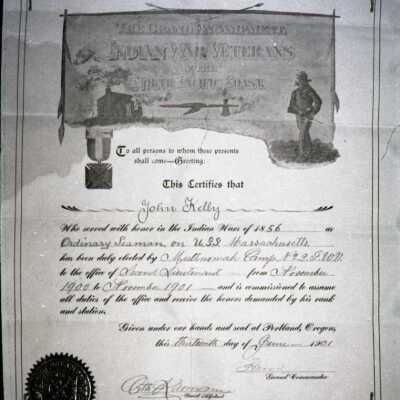 The Grand Encampment
Indian War Veterans
of the
North Pacific Coast
To all persons to whom these presents
shall come—Greeting:
This Certifies that
John Kelly
Who served with honor in the Indian Wars of 1856 as
Ordinary Seaman on USS Massachusetts
has been duly elected by Multnomah Camp No 2 I.W.V.
to the office of Second Lieutenant from November
1900 to November 1901 and is commissioned to assume
all duties of the office and receive the honors demanded by his rank
and station.
Given under our hands and seal at Portland, Oregon,
this thirteenth day of June 1901
Grand Commander
Grand Adjutant